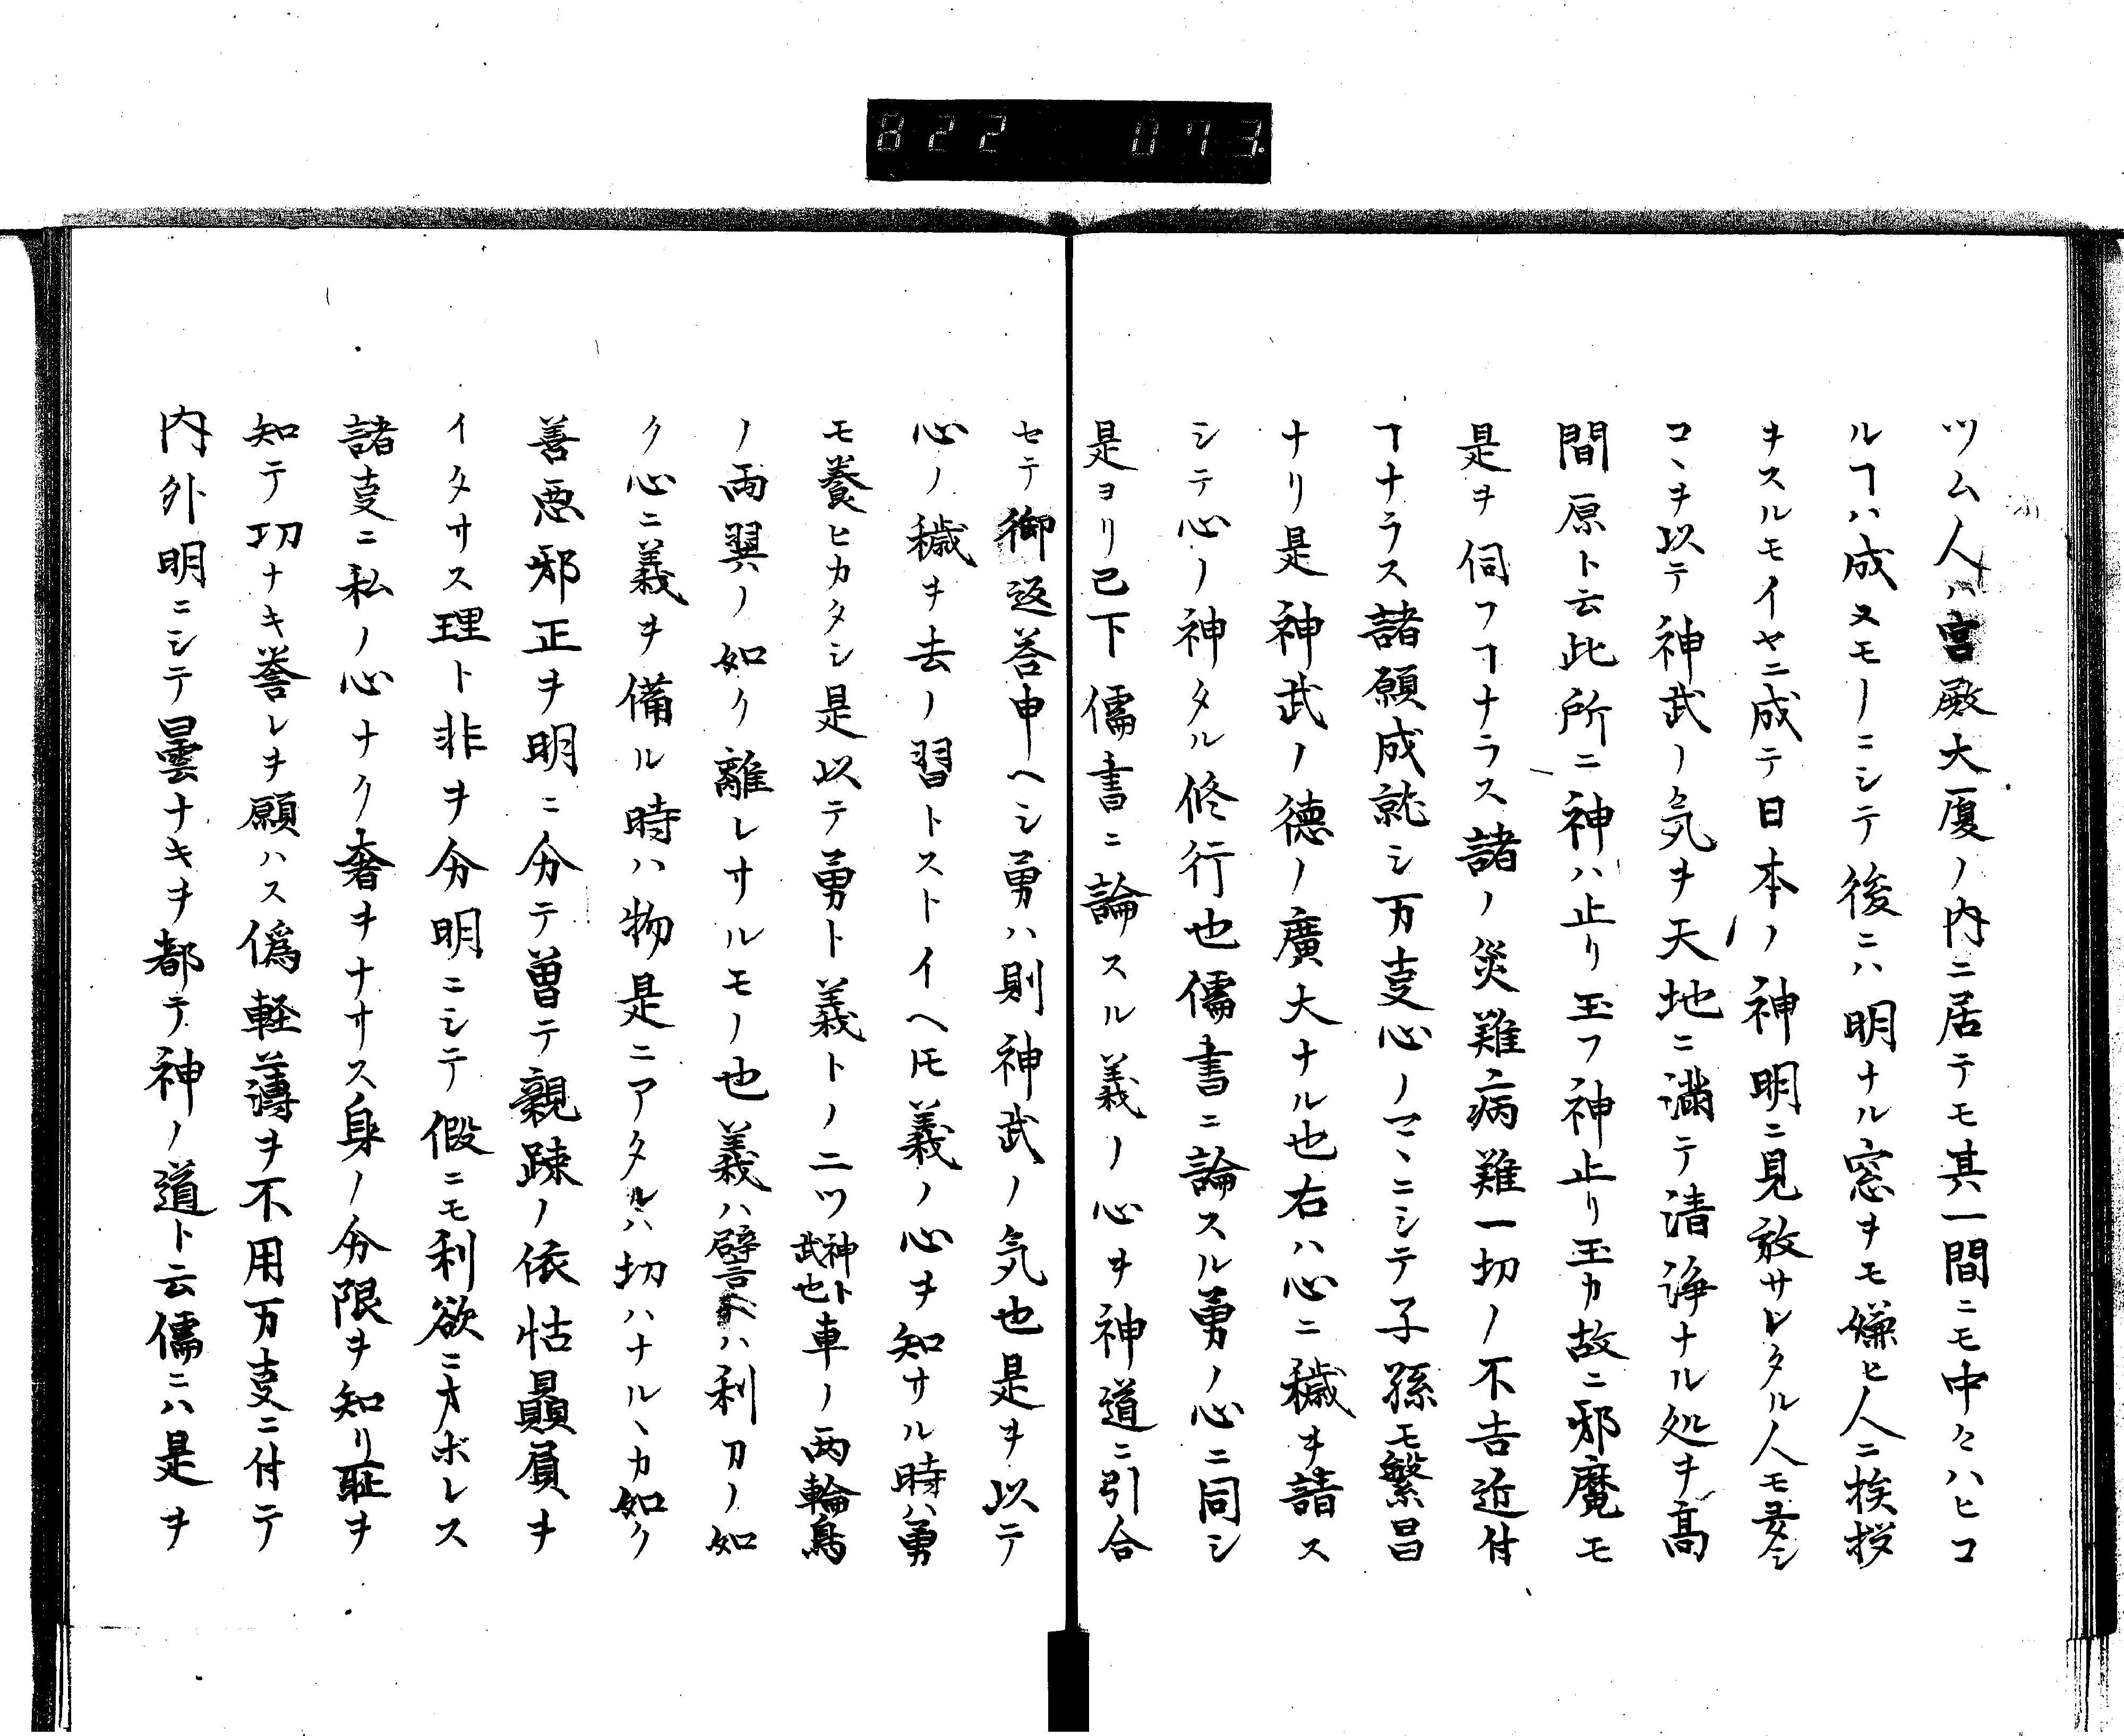 822 073.
ツム人ハ宮殿大厦ノ内ニ居テモ其一間ニモ中々ハヒコ
ルヿハ成ヌモノニシテ後ニハ明ナル窓ヲモ嫌ヒ人ニ挨拶
ヲスルモイヤニ成テ日本ノ神明ニ見放サレタル人モ
コヽヲ以テ神武ノ気ヲ天地ニ満テ清浄ナル処ヲ高
間原ト云此所ニ神ハ止リ玉フ神止リ玉カ故ニ邪魔モ
是ヲ伺フヿナラス諸ノ災難病難一切ノ不吉近付
ヿナラス諸願成就シ万叓心ノマヽニシテ子孫モ繁昌
ナリ是神武ノ徳ノ廣大ナル也右ハ心ニ穢ヲ請ス
シテ心ノ神タル修行也儒書ニ論スル勇ノ心ニ同シ
是ヨリ已下儒書ニ論スル義ノ心ヲ神道ニ引合
セテ御返答申ヘシ勇ハ則神武ノ気也是ヲ以テ
心ノ穢ヲ去ノ習トストイヘ𪜈義ノ心ヲ知サル時ハ勇
モ養ヒカタシ是以テ勇ト義トノ二ツ神ト武也車ノ両輪鳥
ノ両翼ノ如ク離レサルモノ也義ハ譬ヘハ利刀ノ如
ク心ニ義ヲ備ル時ハ物是ニアタルハ切ハナルヽカ如ク
善悪邪正ヲ明ニ分テ曽テ親踈ノ依怙贔屓ヲ
イタサス理ト非ヲ分明ニシテ假ニモ利欲ニオボレス
諸叓ニ私ノ心ナク奢ヲナサス身ノ分限ヲ知リ耻ヲ
知テ功ナキ誉レヲ願ハス偽軽薄ヲ不用万叓ニ付テ
内外明ニシテ曇ナキヲ都テ神ノ道ト云儒ニハ是ヲ